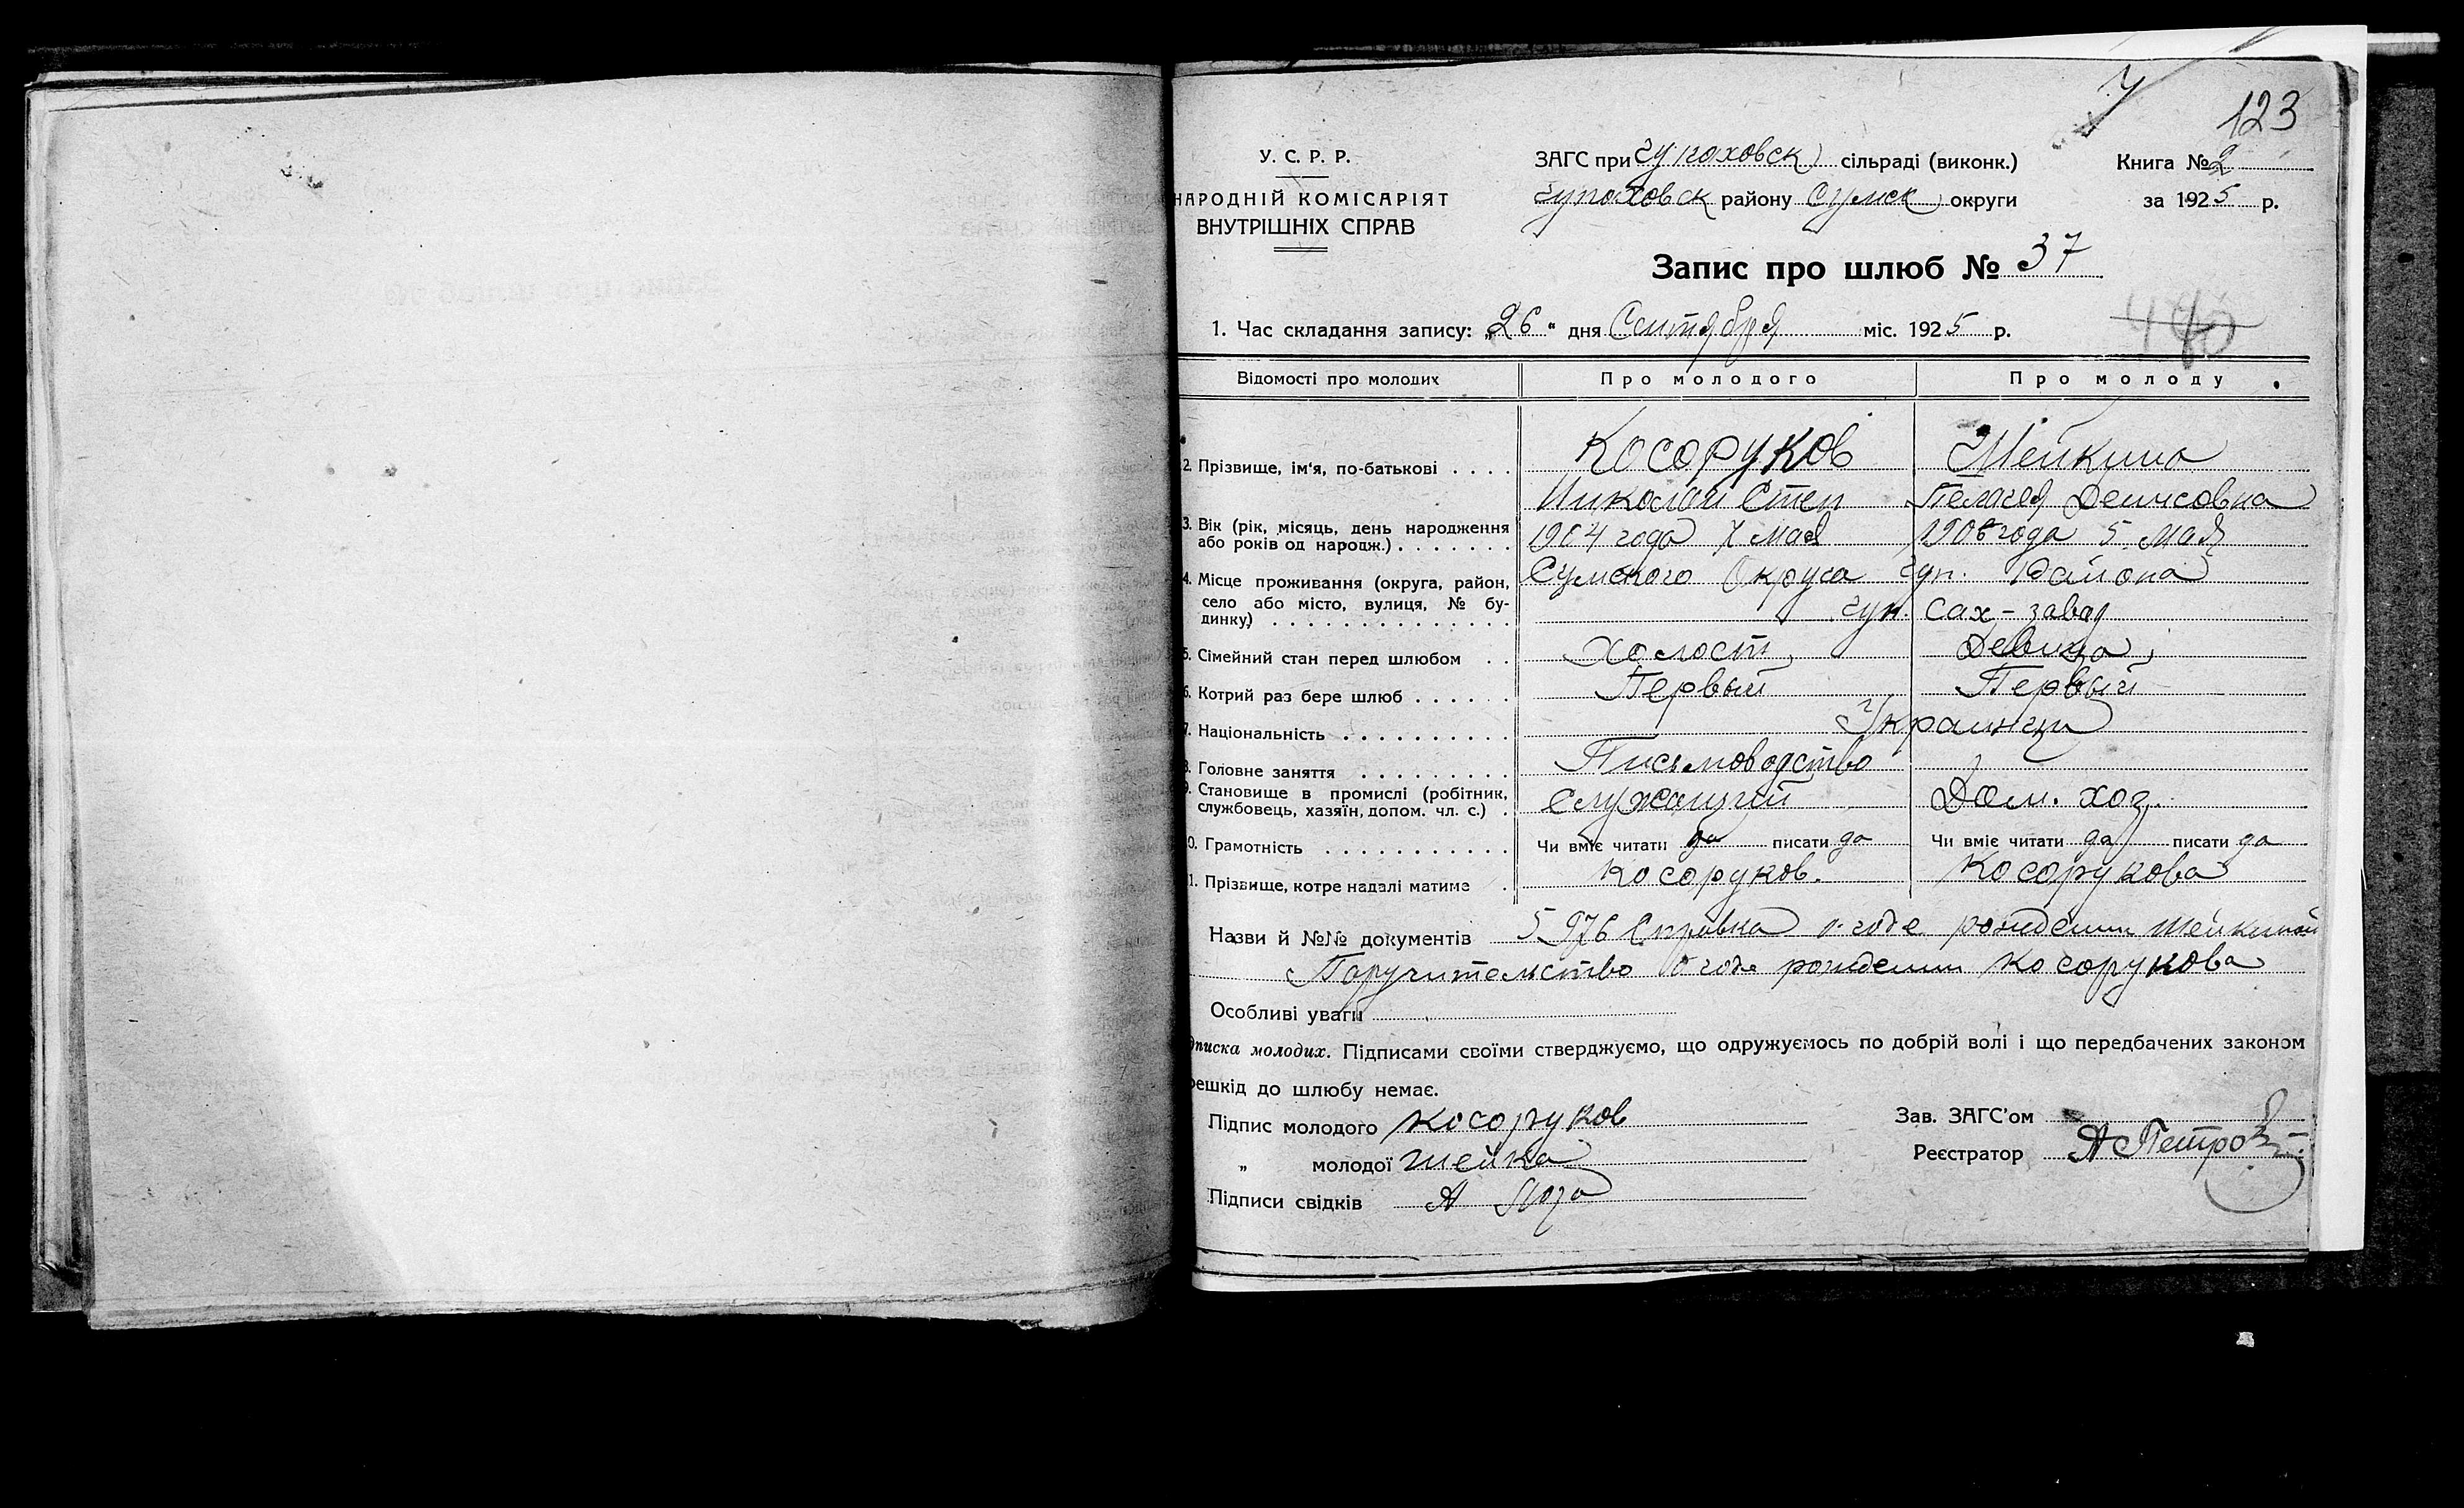 123
У. С. Р. Р.
НАРОДНІЙ КОМІСАРІЯТ
ВНУТРІШНІХ СПРАВ
ЗАГС при Чупаховск сільраді (виконк.)
Чупаховск району Сумск округи
Книга № 2
за 1925 р.
Запис про шлюб № 37
1. Час складання запису: „26" дня Сентября міс. 1925 р.
Відомості про молодих Про молодого Про молоду
2. Прізвище, ім'я, по-батькові . . . . Косоруков Шейкина
Николай Степ Пелагея Денисовна
3. Вік (рік, місяць, день народження
або років од народж.) . . . . . . . 1904 года 7 мая 1906 года 5 мая
4. Місце проживання (округа, район, Сумского Округа Чуп. Района
село або місто, вулиця, № бу-
динку) . . . . . . . . . . . . . . Чуп. Сах-завод
5. Сімейний стан перед шлюбом . . Холост Девица
6. Котрий раз бере шлюб . . . . . . Первый Первый
7. Національність . . . . . . . . . . Украинцы
8. Головне заняття . . . . . . . . . Письмоводство
9. Становище в промислі (робітник,
службовець, хазяїн, допом. чл. с.) . Служащий Дом. хоз.
0. Грамотність . . . . . . . . . . . Чи вміє читати да писати да Чи вміє читати да писати да
1. Прізвище, котре надалі матиме . Косоруков. Косорукова
Назви й №№ документів 5976 Справка о годе рождении Шейкиной
Поручительство о годе рождении Косорукова
Особливі уваги
дписка молодих. Підписами своїми стверджуємо, що одружуємось по добрій волі і що передбачених законом
решкід до шлюбу немає.
Підпис молодого Косоруков
„ молодої Шейка
Підписи свідків А
Зав. ЗАГС'ом
Реєстратор А Петров